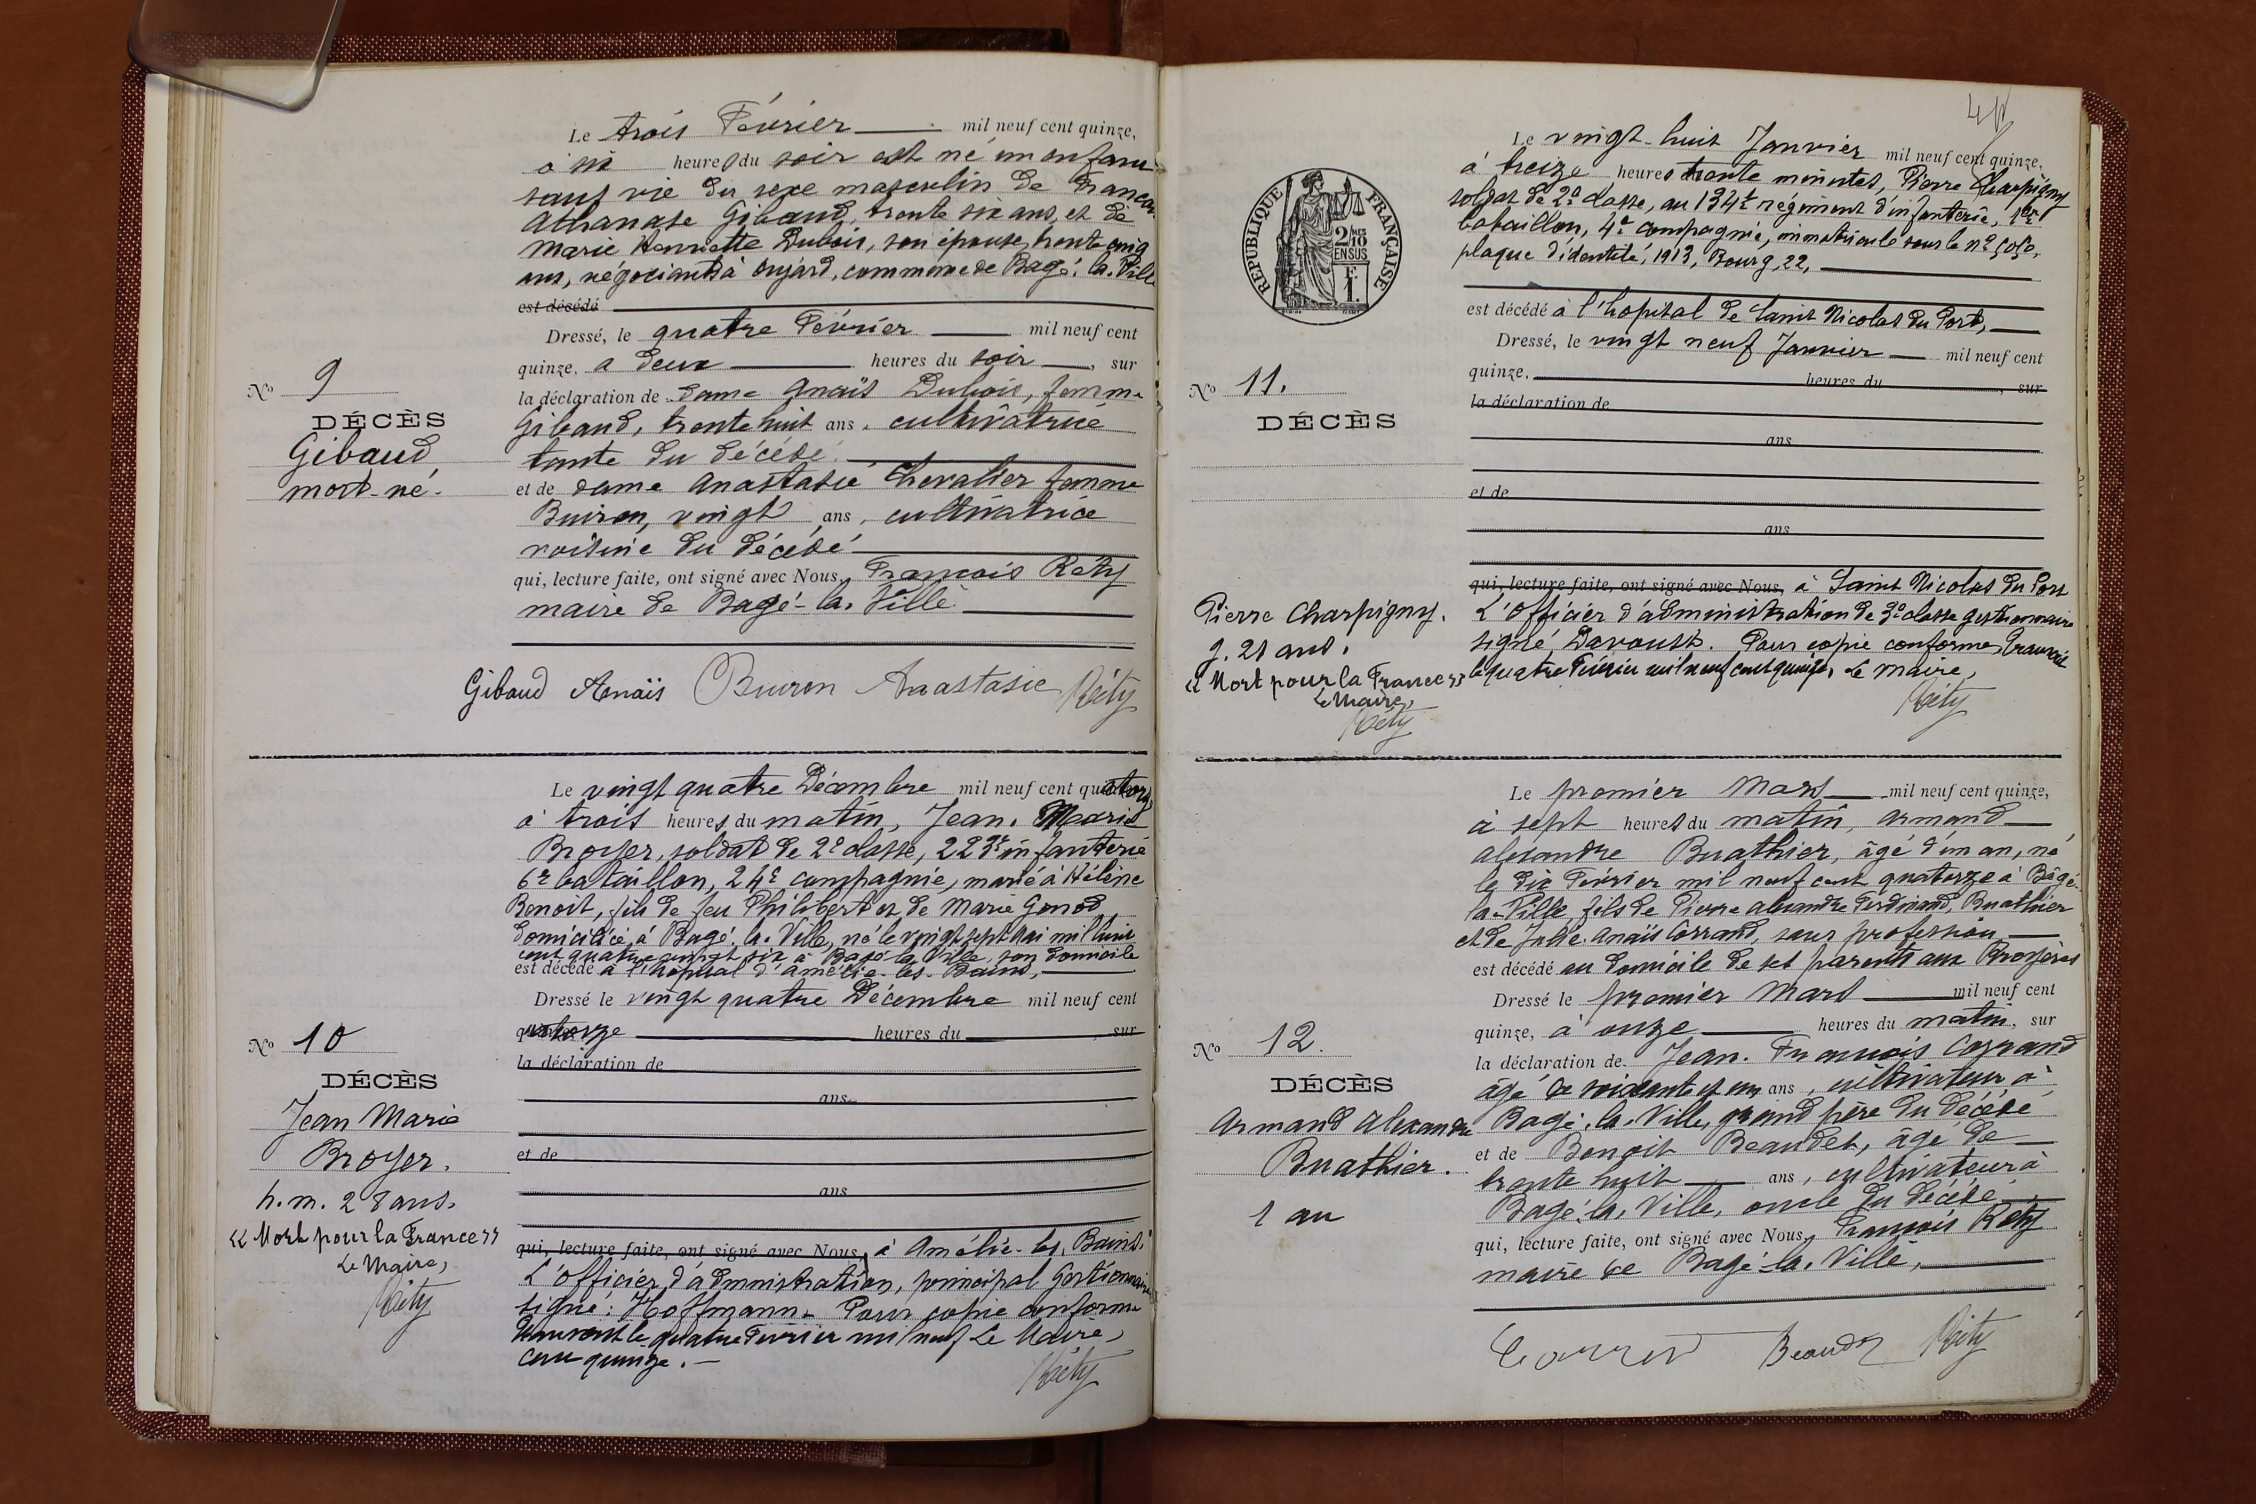 Le trois Février mil neuf cent quinze,
à six heures du soir est né un enfant
sans vie du sexe masculin de François
Athanase Gibaud, trente six ans, et de
Marie Henriette Dubois, son épouse, trente cinq
ans, négociants à , commune de Bagé-la-Ville
est décédé
Dressé, le quatre Février mil neuf cent
quinze, à deux heures du soir, sur
la déclaration de Dame Anaïs Dubois, femme
Gibaud, trente huit ans, cultivatrice
tante du décédé.
et de dame Anastasie Chevalier femme
Buiron, vingt ans, cultivatrice
voisine du décédé
qui, lecture faite, ont signé avec Nous, François Réty
maire de Bagé-la-Ville
No 9
DÉCÈS
Gibaud
mort-né.
Gibaud Anaïs Buiron Anastasie Réty
Le vingt quatre Décembre mil neuf cent quatorze,
à trois heures du matin, Jean-Marie
Broyer, soldat de 2e classe, 223e infanterie
6e bataillon, 24e compagnie, marié à Hélène
Benoit, fils de feu Philibert et de Marie Gonod
domicilié à Bagé-la-Ville, né le vingt sept mai mil huit
cent quatre vingt six à Bagé-la-Ville, son domicile
est décédé à l'hôpital d'Amélie-les-Bains,
Dressé le vingt quatre Décembre mil neuf cent
quatorze heures du sur
la déclaration de
ans
et de
ans
qui, lecture faite, ont signé avec Nous, à Amélie-les-Bains.
L'Officier d'administration, principal Gestionnaire
signé: Hoffmann. Pour copie conforme
transcrit le quatre Février mil neuf Le Maire,
cent quinze.
Réty
No 10
DÉCÈS
Jean Marie
Broyer.
h. m. 28 ans.
"Mort pour la France"
Le Maire,
Réty
41
RÉPUBLIQUE FRANÇAISE
2/10
EN SUS
Le vingt-huit Janvier mil neuf cent quinze,
à treize heures trente minutes, Pierre Charpigny
soldat de 2e classe, au 134e régiment d'infanterie, 1er
bataillon, 4e compagnie, immatriculé sous le no 5050,
plaque d'identité, 1913, Bourg, 22,
est décédé à l'hopital de Saint Nicolas du Port,
Dressé, le vingt neuf Janvier mil neuf cent
quinze, heures du, sur
la déclaration de
ans
et de
ans
qui, lecture faite, ont signé avec Nous, à Saint Nicolas du Port
L'Officier d'administration de 3e classe gestionnaire
signé, Davoust. Pour copie conforme, transcrit
le quatre Février mil neuf cent quinze, Le Maire,
Réty
No 11.
DÉCÈS
Pierre Charpigny.
g. 21 ans.
"Mort pour la France"
Le Maire,
Réty
Le premier Mars mil neuf cent quinze,
à sept heures du matin, Armand
Alexandre Buathier, âgé d'un an, né
le dix Février mil neuf cent quatorze à Bâgé-
la-Ville, fils de Pierre Alexandre Ferdinand, Buathier
et de Julie Anaïs Corrand, sans profession
est décédé au domicile de ses parents aux Broyères
Dressé le premier Mars mil neuf cent
quinze, à onze heures du matin, sur
la déclaration de Jean-François Corrand
âgé de soixante et un ans, cultivateur à
Bagé-la-Ville, grand père du décédé
et de Benoit Beaudet, âgé de
trente huit ans, cultivateur à
Bagé-la-Ville, oncle du décédé
qui, lecture faite, ont signé avec Nous, François Réty
maire de Bagé-la-Ville,
No 12.
DÉCÈS
Armand Alexandre
Buathier.
1 an
Beaudet Réty